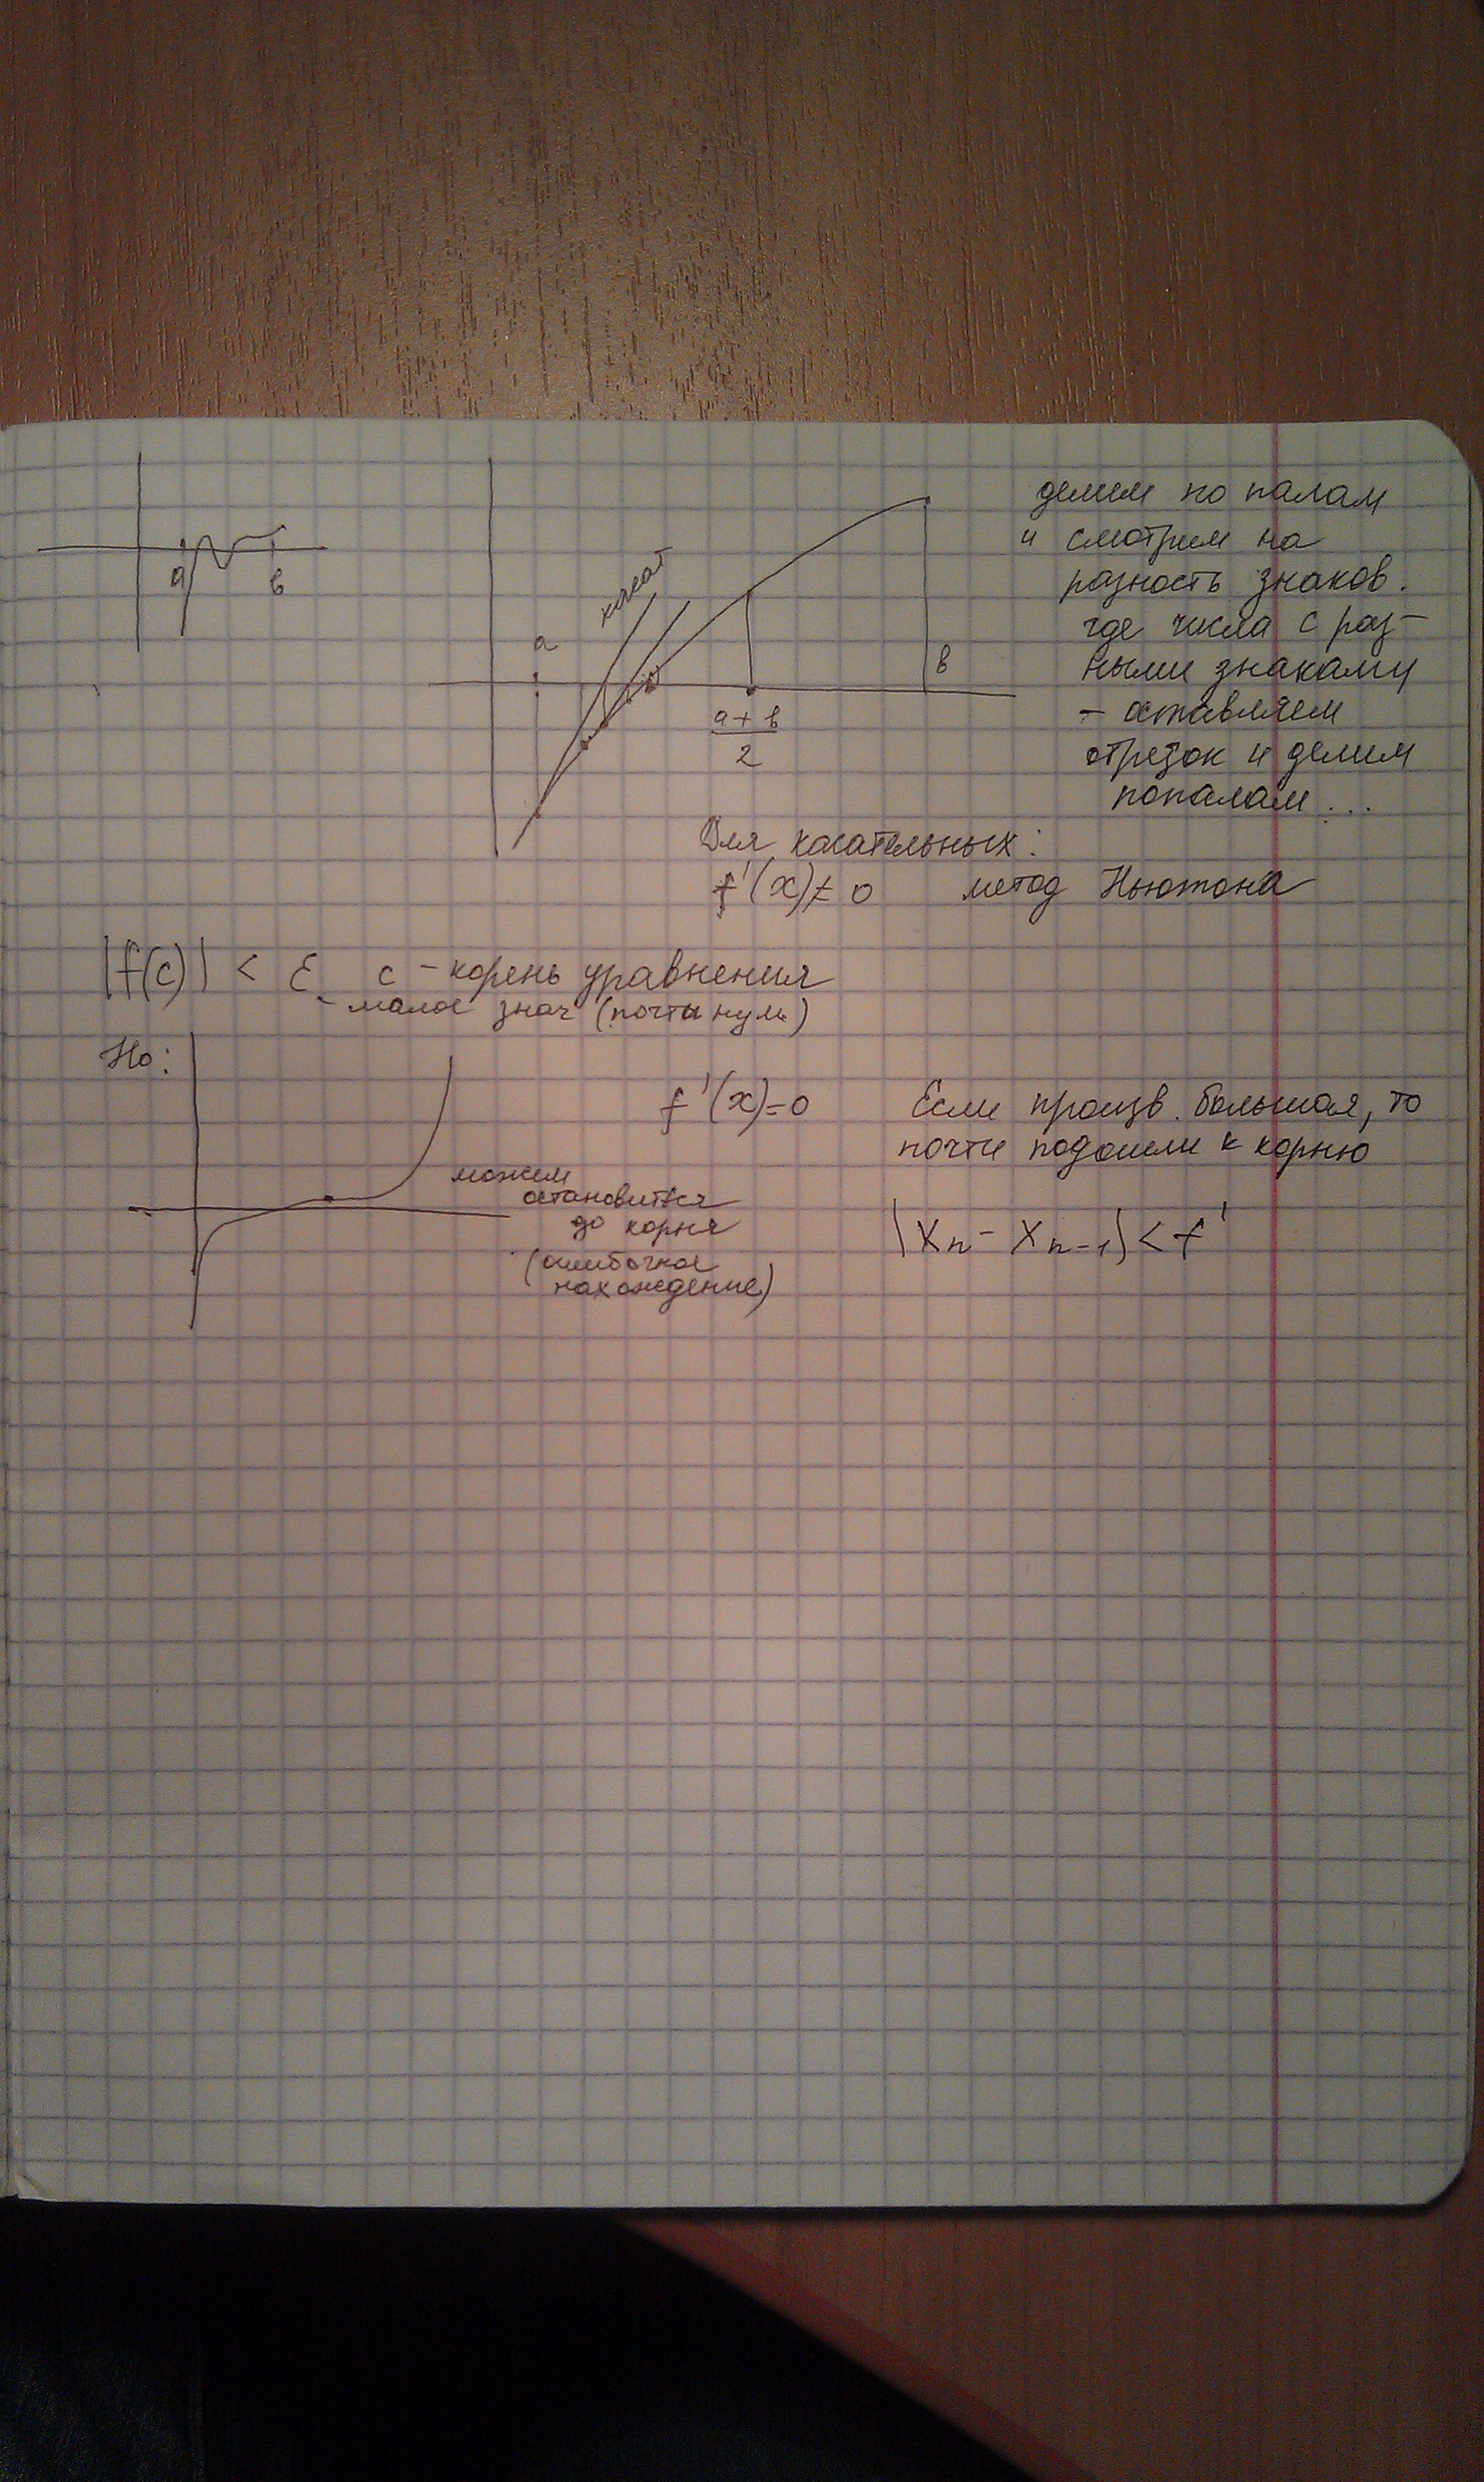 a
в
касат
a
в
a + в
2
делим по палам
и смотрим на
разность знаков.
где числа с раз-
ными знаками
- оставляем
отрезок и делим
попалам...
Для касательных:
f'(x) ≠ 0 метод Ньютона
|f(c)| < ε c - корень уравнения
- малое знач (почти нуль)
Но:
f'(x)=0
можем
остановиться
до корня
(ошибочное
нахождение)
Если произв. большая, то
почти подошли к корню
|Xn - Xn-1| < f'